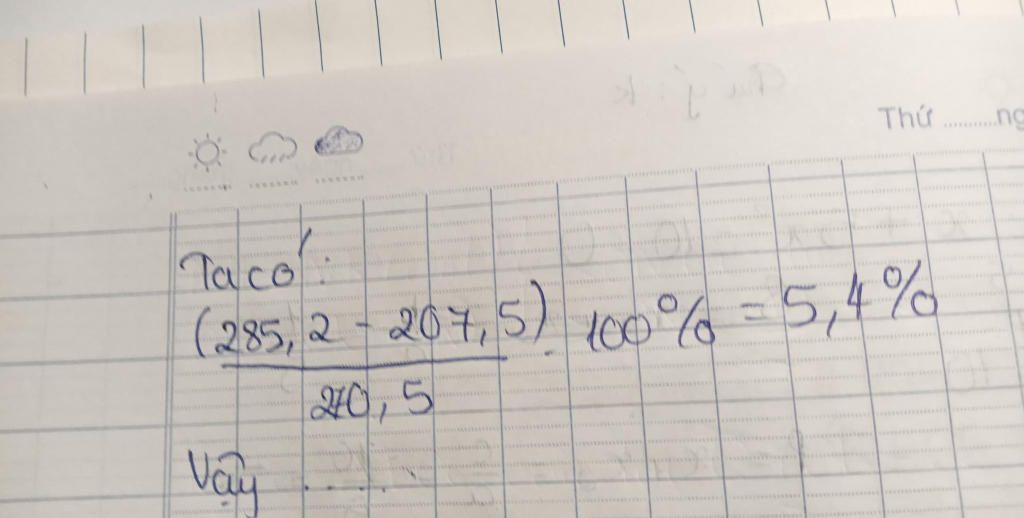 Thứ ..........ng
Ta có:
(285,2 - 267,5) . 100% = 5,4%
270,5
Vậy ......